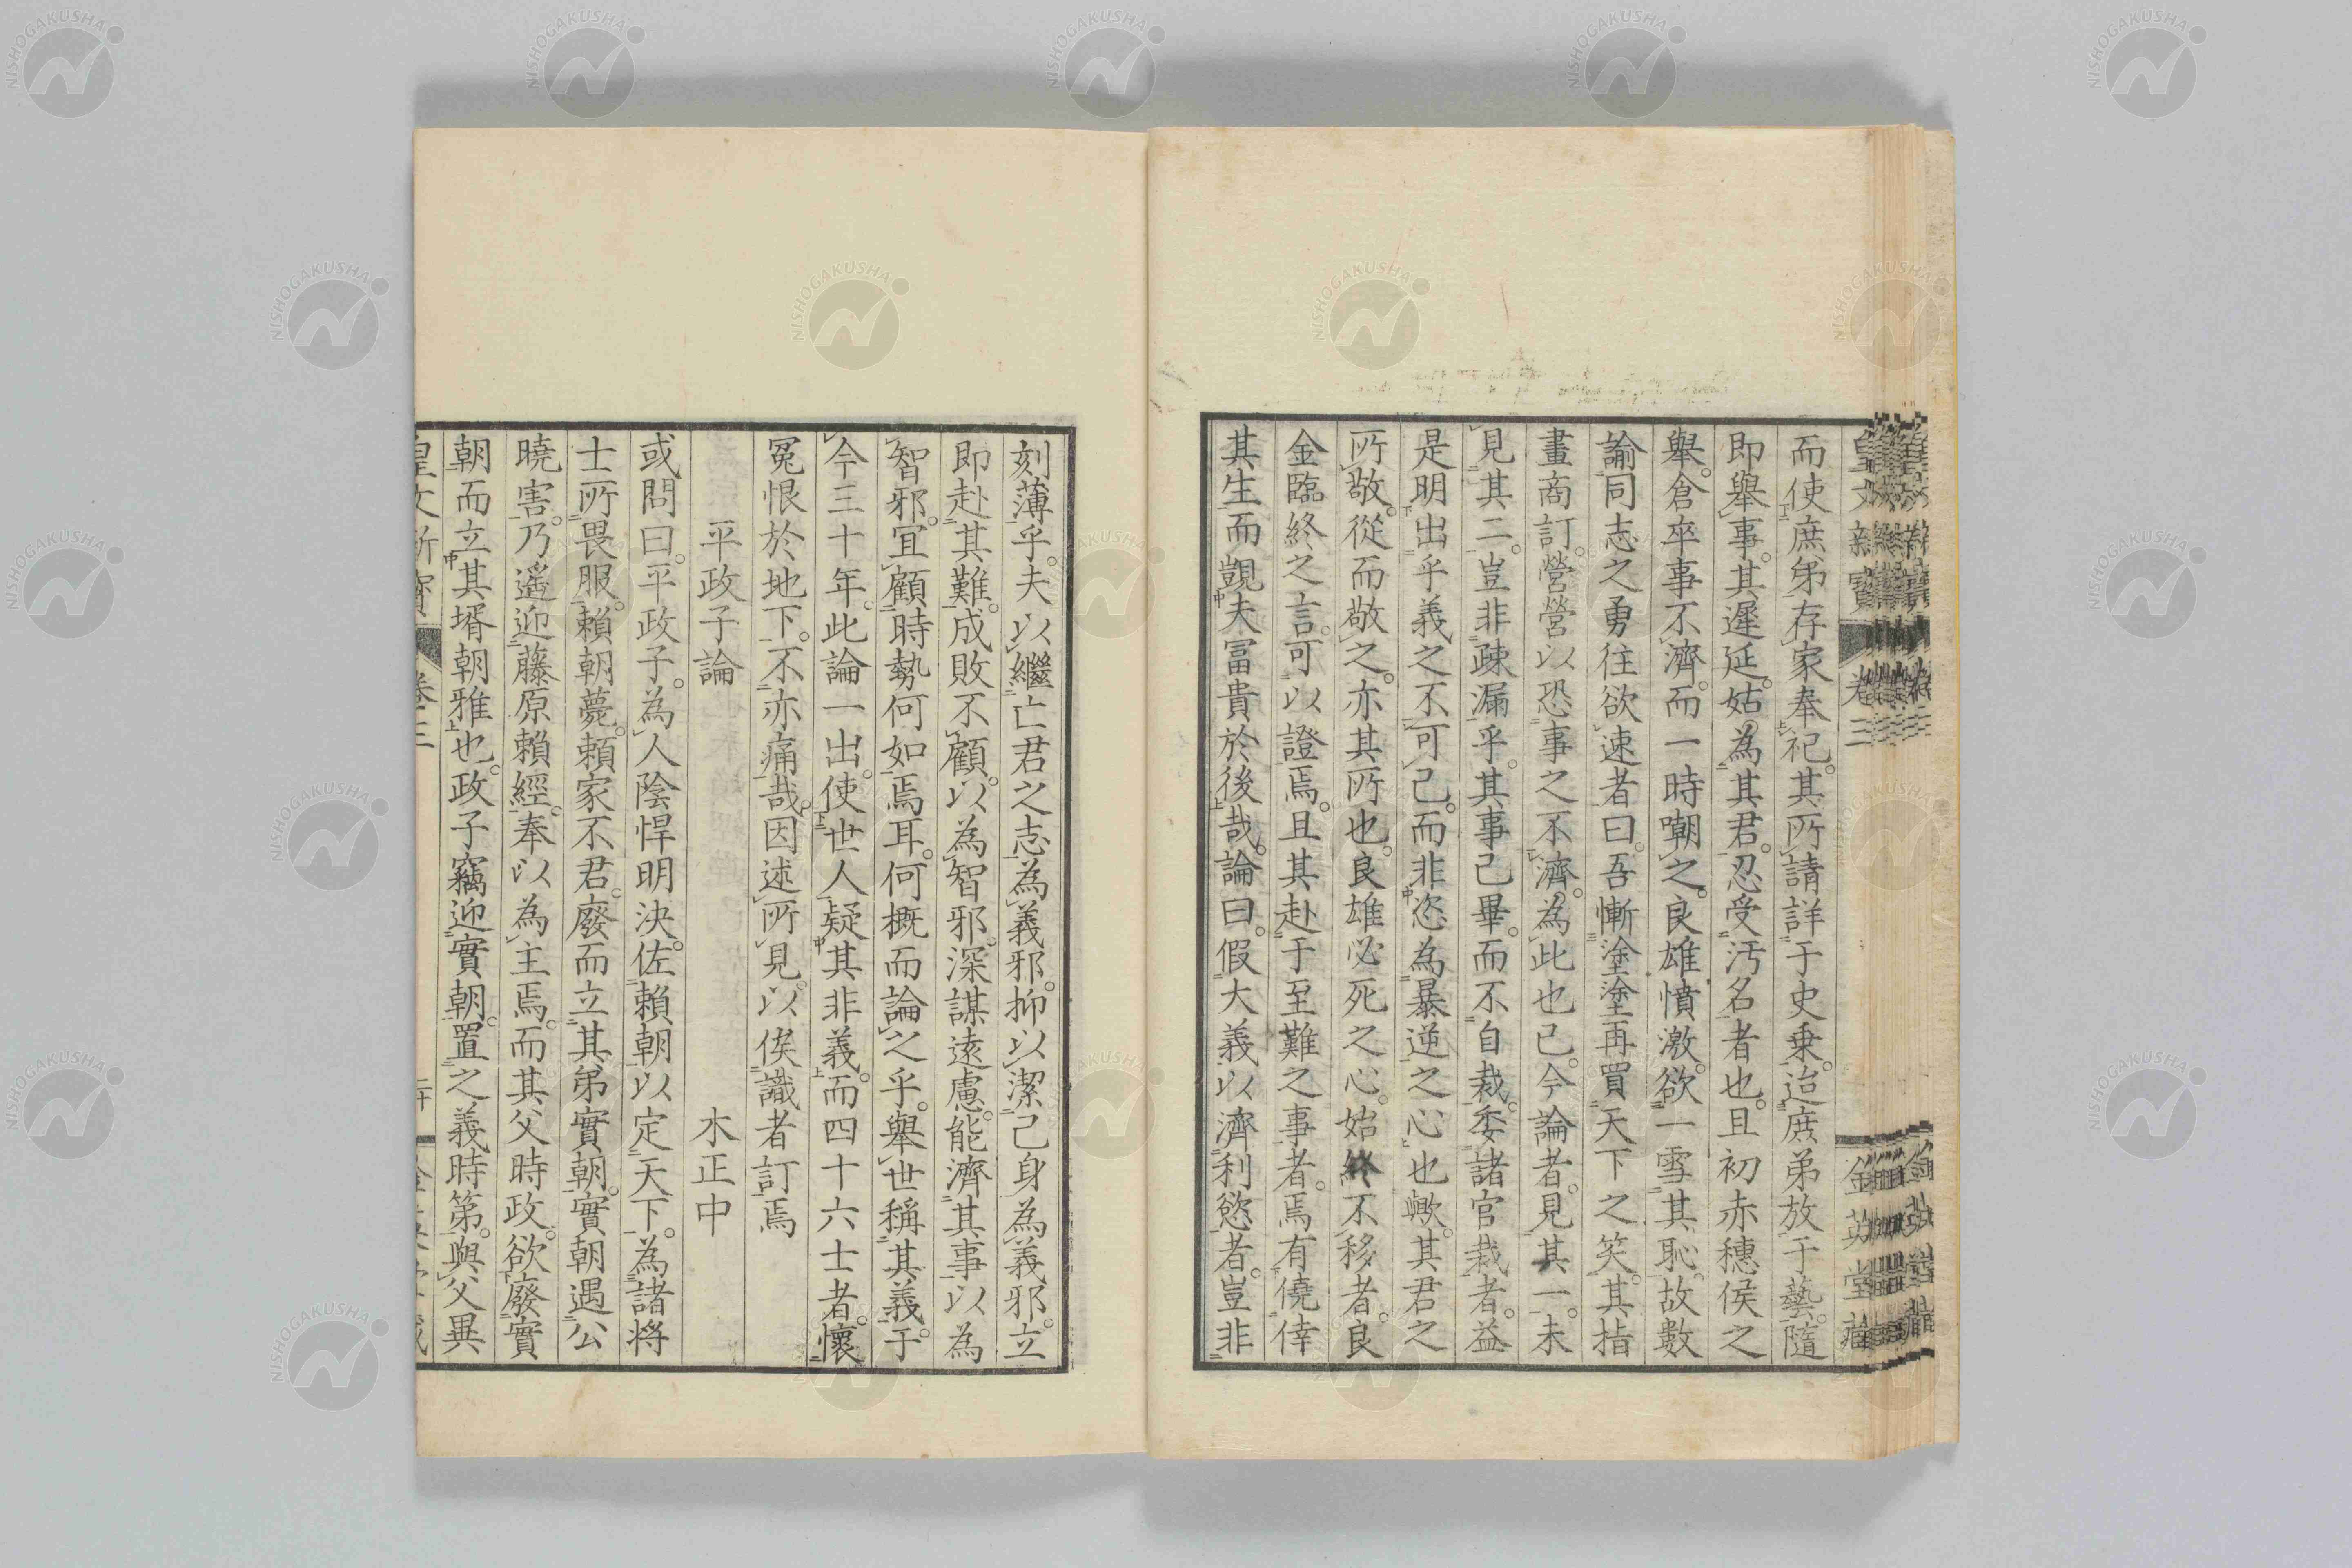 皇文新寶 卷三 金英堂藏
而使庶弟存家奉祀。其所請詳于史乗。迨庶弟放于藝。隨
即舉事。其遲延。姑為其君。忍受汚名者也。且初赤穗侯之
舉。倉卒事不濟。而一時嘲之。良雄憤激。欲一雪其恥。故數
諭同志之勇往欲速者曰。吾慚塗塗再買天下之笑。其指
畫商訂。營營以恐事之不濟。為此也已。今論者。見其一。未
見其二。豈非疎漏乎。其事已畢。而不自裁。委諸官裁者。益
是明出乎義之不可已。而非恣為暴逆之心也歟。其君之
所敬。從而敬之。亦其所也。良雄必死之心。始終不移者。良
金臨終之言。可以證焉。且其赴于至難之事者。焉有僥倖
其生而覬夫冨貴於後哉。論曰。假大義以濟利慾者。豈非
刻薄乎。夫以繼亡君之志為義邪。抑以潔己身為義邪。立
即赴其難。成敗不顧。以為智邪。深謀遠慮。能濟其事以為
智邪。宜顧時勢何如焉耳。何概而論之乎。舉世稱其義。于
今三十年。此論一出。使世人疑其非義。而四十六士者。懷
冤恨於地下。不亦痛哉。因述所見。以俟識者訂焉
平政子論 木正中
或問曰。平政子。為人陰悍明決。佐賴朝以定天下。為諸將
士所畏服。賴朝薨。賴家不君。廢而立其弟實朝。實朝遇公
曉害。乃遙迎藤原賴經。奉以為主焉。而其父時政。欲廢實
朝而立其壻朝雅也。政子竊迎實朝。置之義時第。與父異
皇文新寶 卷三 二十